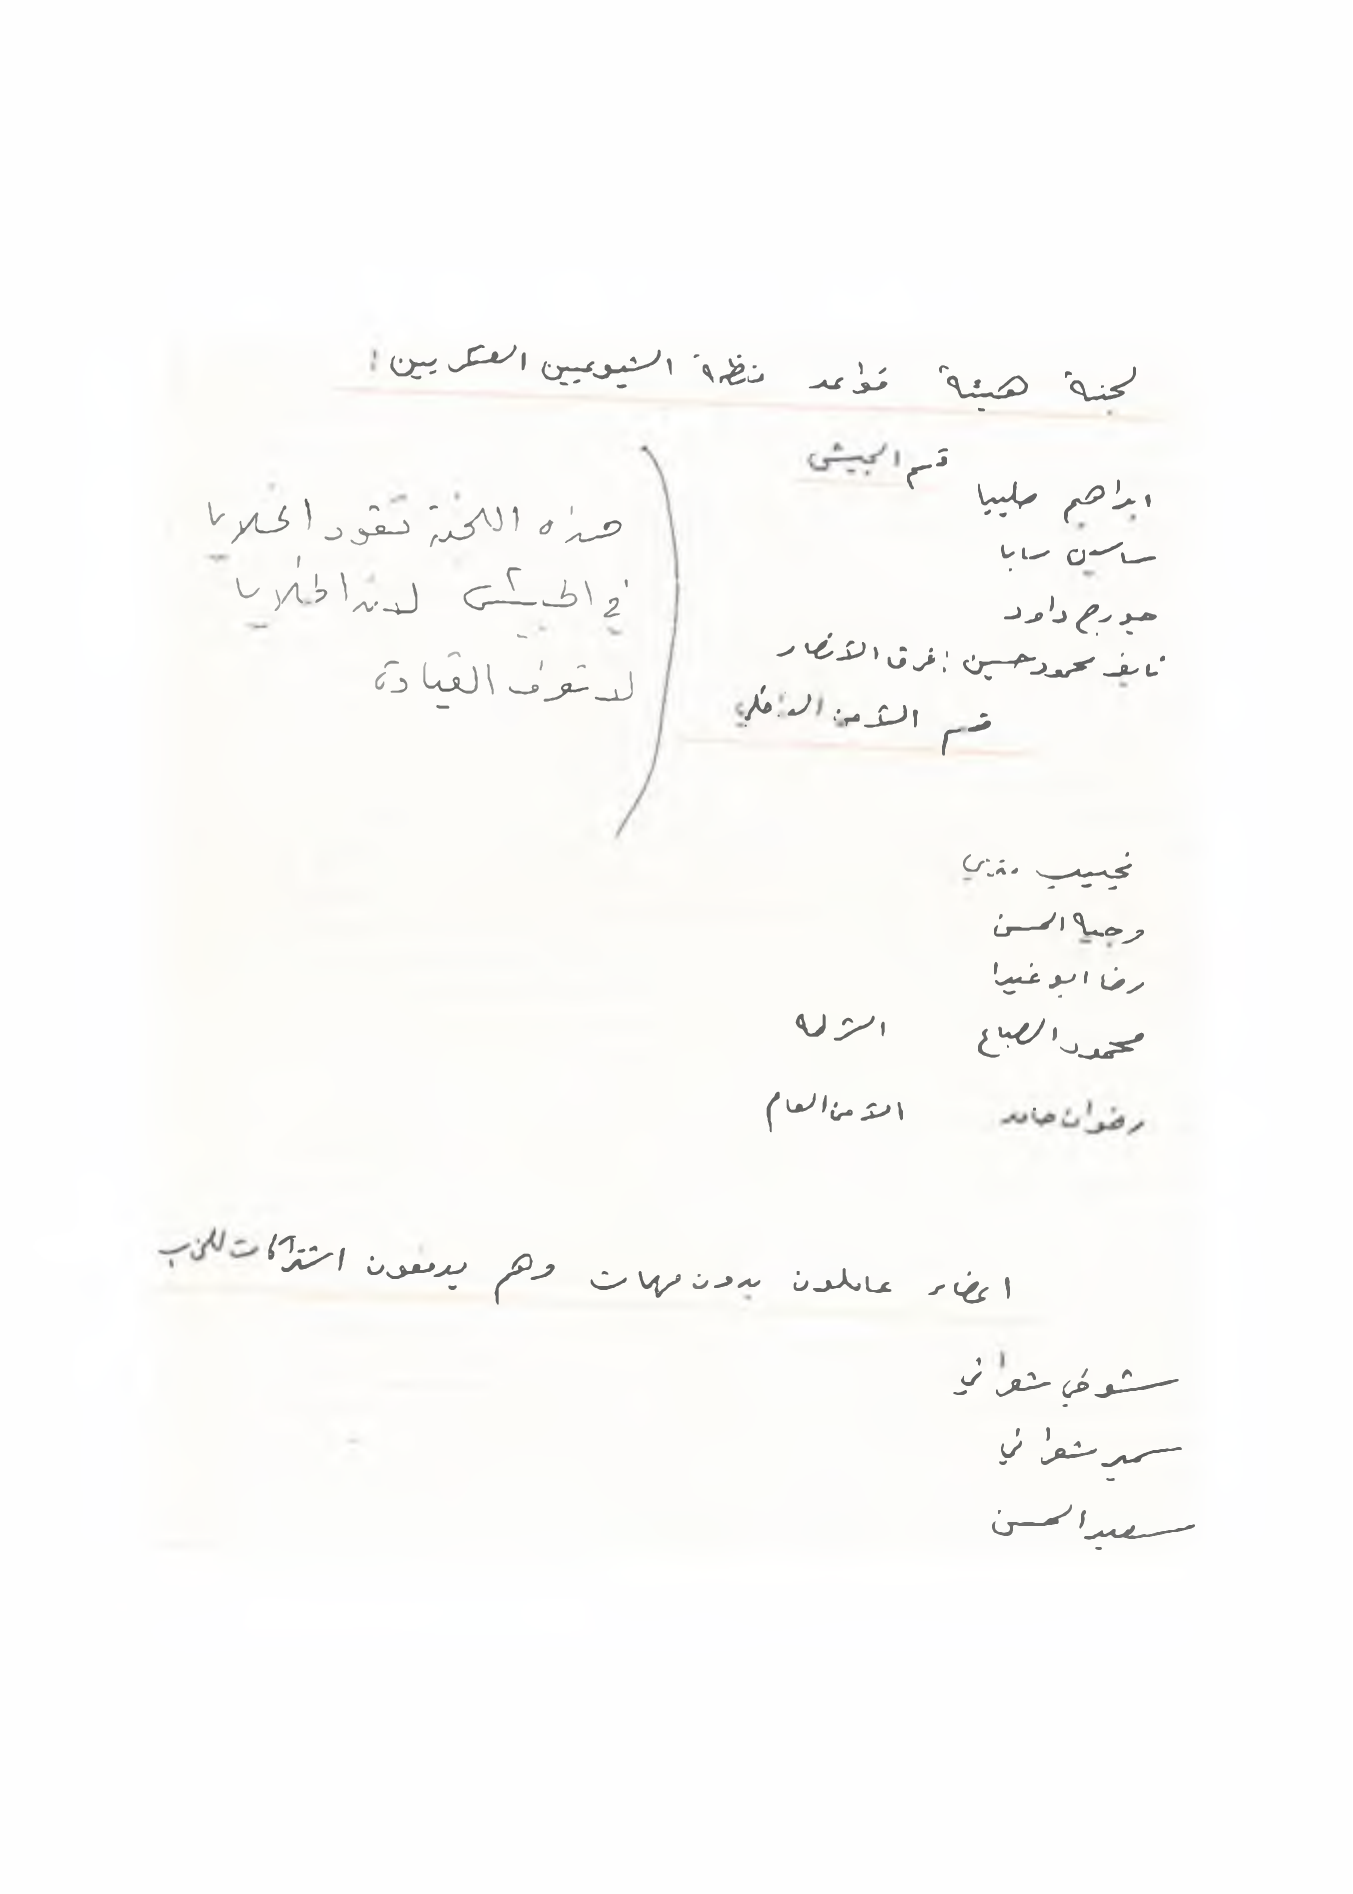 لجنة هيئة قواعد منظمة الشيوعيين العسكريين :
قسم الجيش
ابراهيم صليبا
ساسين سابا
جورج داود
نايف محمود حسين : فرق الأنصار
هذه اللجنة تقود الخلايا
في الجيش لان الخلايا
لا تعرف القيادة
قسم الأمن الداخلي
نجيب
وجيه الحسن
رضا ابو غيدا
محمود الصباع الشرطه
رضوان حامد الأمن العام
اعضاء عاملون بدون مهمات وهم يدفعون اشتراكات للحزب
شوقي شعراني
سمير شعراني
سعيد الحسن